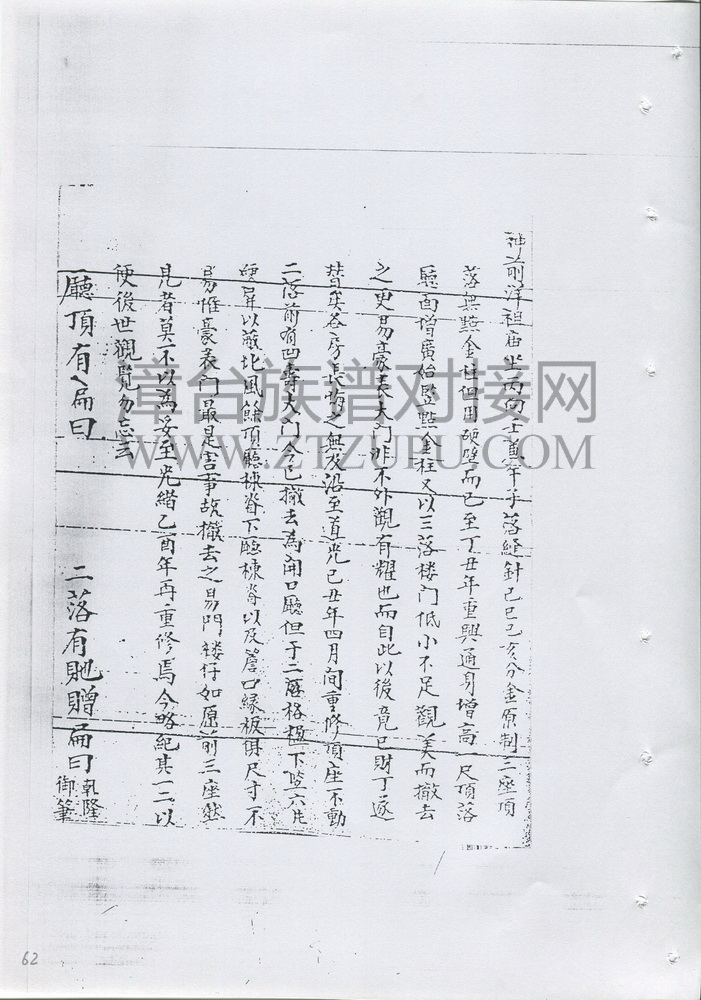 神前洋祖庙坐丙向壬兼午子落縫針己巳己亥分金原制三座頂
落無點金柱但用硬壁而已至丁丑年重興通身增高一尺頂落
廳面增廣始豎點金柱又以三落楼门低小不足觀美而撤去
之更易豪表大门非不外觀有耀也而自此以後竟已財丁遂
替矣各房長悔之無及沿至道光己丑年四月间重修頂座不動
二落前有凹壽大门今已撤去為開口廳但于二落格楹下豎六片
硬屏以蔽北風餘頂廳棟脊下廳棟脊以及簷口緣板俱尺寸不
易惟豪表门最是害事故撤去之易門楼仔如愿前三座然
見者莫不以為妥至光緒乙酉年再重修焉今略紀其一二以
便後世觀覽勿忘云
廳頂有扁曰
二落有貤贈扁曰 乾隆
御筆
章台族谱对接网
WWW.ZTZUPU.COM
62